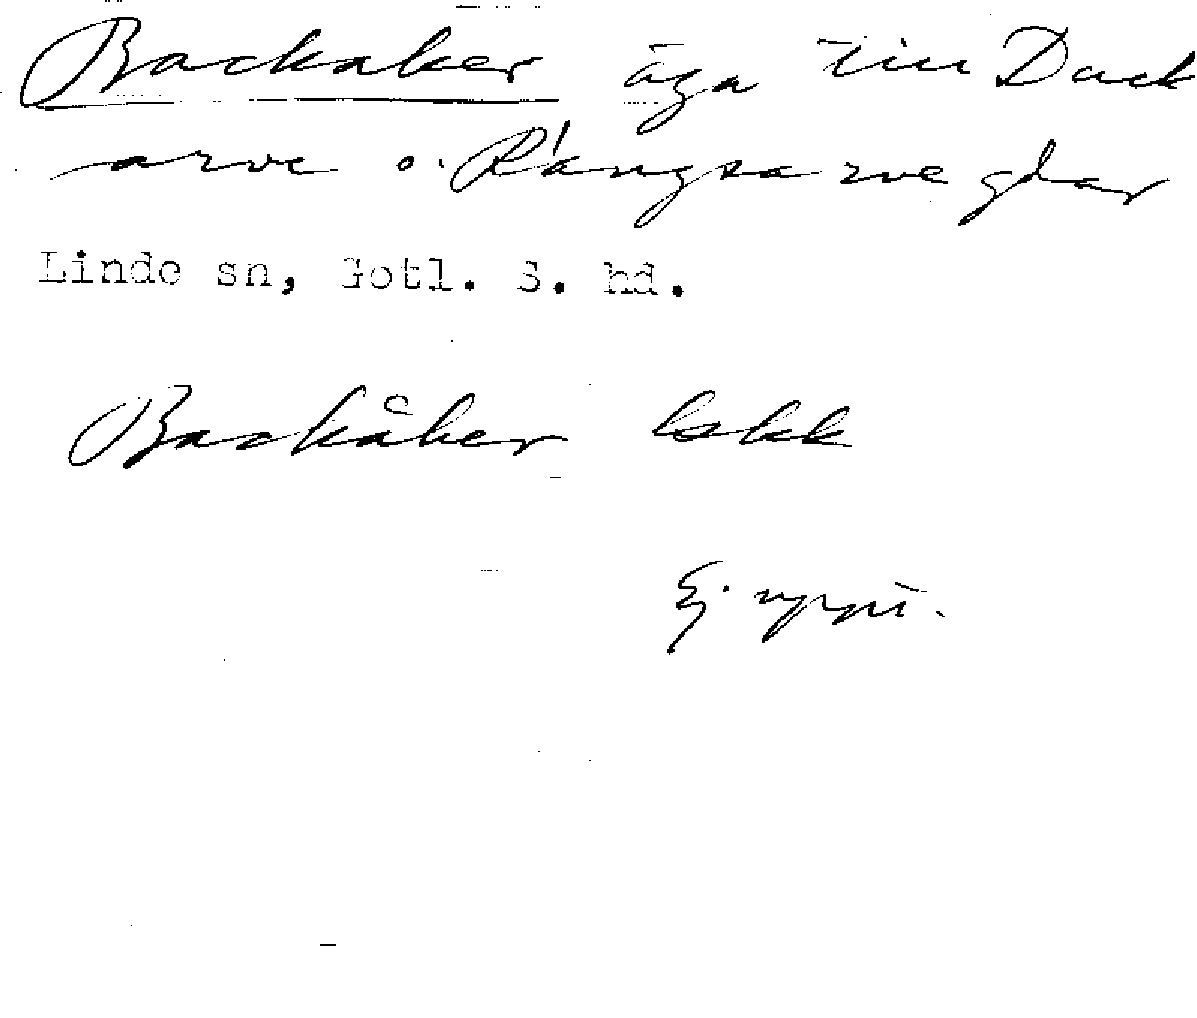 Backaker äga till Duck
arve o. Rångsarve gdar
Linde sn, Gotl. S. hd.
Backåker lskk
Ej uppt.